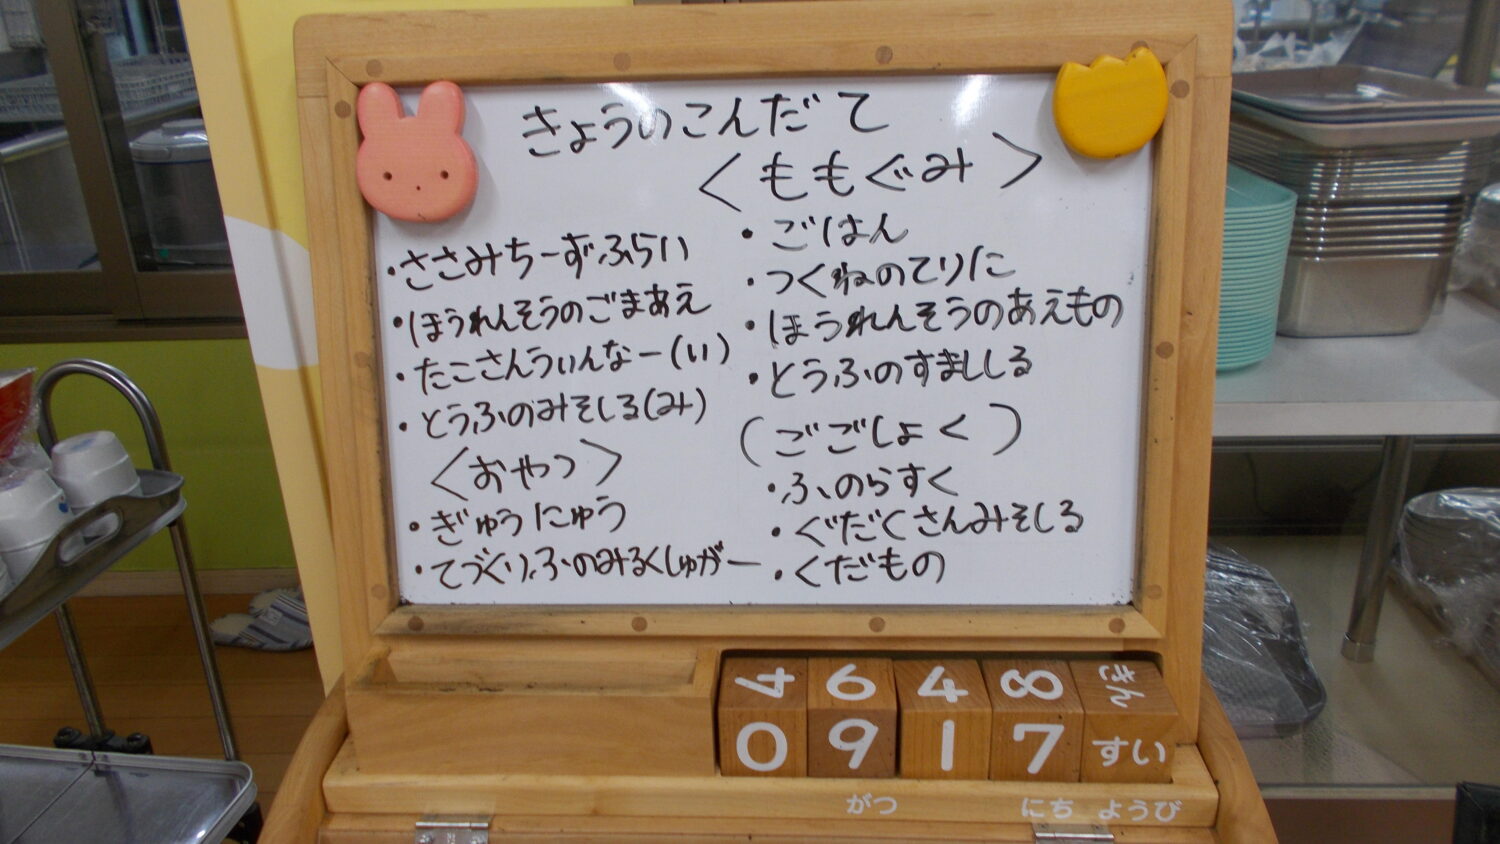 きょうのこんだて
・ささみちーずふらい
・ほうれんそうのごまあえ
・たこさんういんなー(い)
・とうふのみそしる(み)
<おやつ>
・ぎゅうにゅう
・てづくりふのみるくしゅがー
<ももぐみ>
・ごはん
・つくねのてりに
・ほうれんそうのあえもの
・とうふのすましじる
(ごごしょく)
・ふのらすく
・ぐだくさんみそしる
・くだもの
4 6 4 8 きん
0 9 1 7 すい
がつ にち ようび